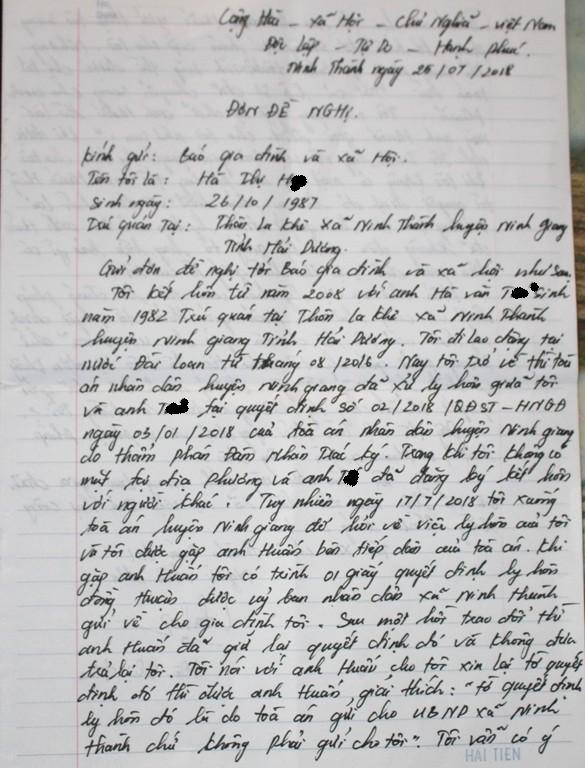 Cộng Hòa - Xã Hội - Chủ Nghĩa - Việt Nam
Độc Lập - Tự Do - Hạnh Phúc.
Ninh Thành ngày 25/07/2018
ĐƠN ĐỀ NGHỊ.
Kính gửi: Báo gia đình và xã Hội.
Tên tôi là: Hà Thị H
Sinh ngày: 26/10/1987
Trú quán tại: Thôn La Khê xã Ninh Thành huyện Ninh giang
Tỉnh Hải Dương.
Gửi đơn đề nghị tới Báo gia đình và xã hội như sau.
Tôi kết hôn từ năm 2008 với anh Hà văn T sinh
năm 1982 Trú quán tại Thôn la khê xã Ninh Thành
huyện ninh giang Tỉnh Hải Dương. Tôi đi lao động tại
nước Đài Loan từ tháng 08/2016. Nay tôi trở về thì toà
án nhân dân huyện ninh giang đã xử ly hôn giữa tôi
và anh T tại quyết định số 02/2018/QĐST-HNGĐ
ngày 03/01/2018 của toà án nhân dân huyện Ninh giang
do thẩm phán Đàm Nhân Trác ký. Trong khi tôi không có
mặt tại địa phương và anh T đã đăng ký kết hôn
với người khác. Tuy nhiên ngày 17/7/2018 tôi xuống
toà án huyện Ninh giang để hỏi về việc ly hôn của tôi
và tôi được gặp anh Huấn ban tiếp dân của tòa án. Khi
gặp anh Huấn tôi có trình 01 giấy quyết định ly hôn
đồng thuận được uỷ ban nhân dân xã Ninh Thành
gửi về cho gia đình tôi. Sau một hồi trao đổi thì
anh Huấn đã giữ lại quyết định đó và không đưa
trả lại tôi. Tôi nói với anh Huấn cho tôi xin lại tờ quyết
định đó thì được anh Huấn giải thích: "tờ quyết định
ly hôn đó là do toà án gửi cho UBND xã Ninh
thành chứ không phải gửi cho tôi". Tôi vẫn có ý
HAI TIEN